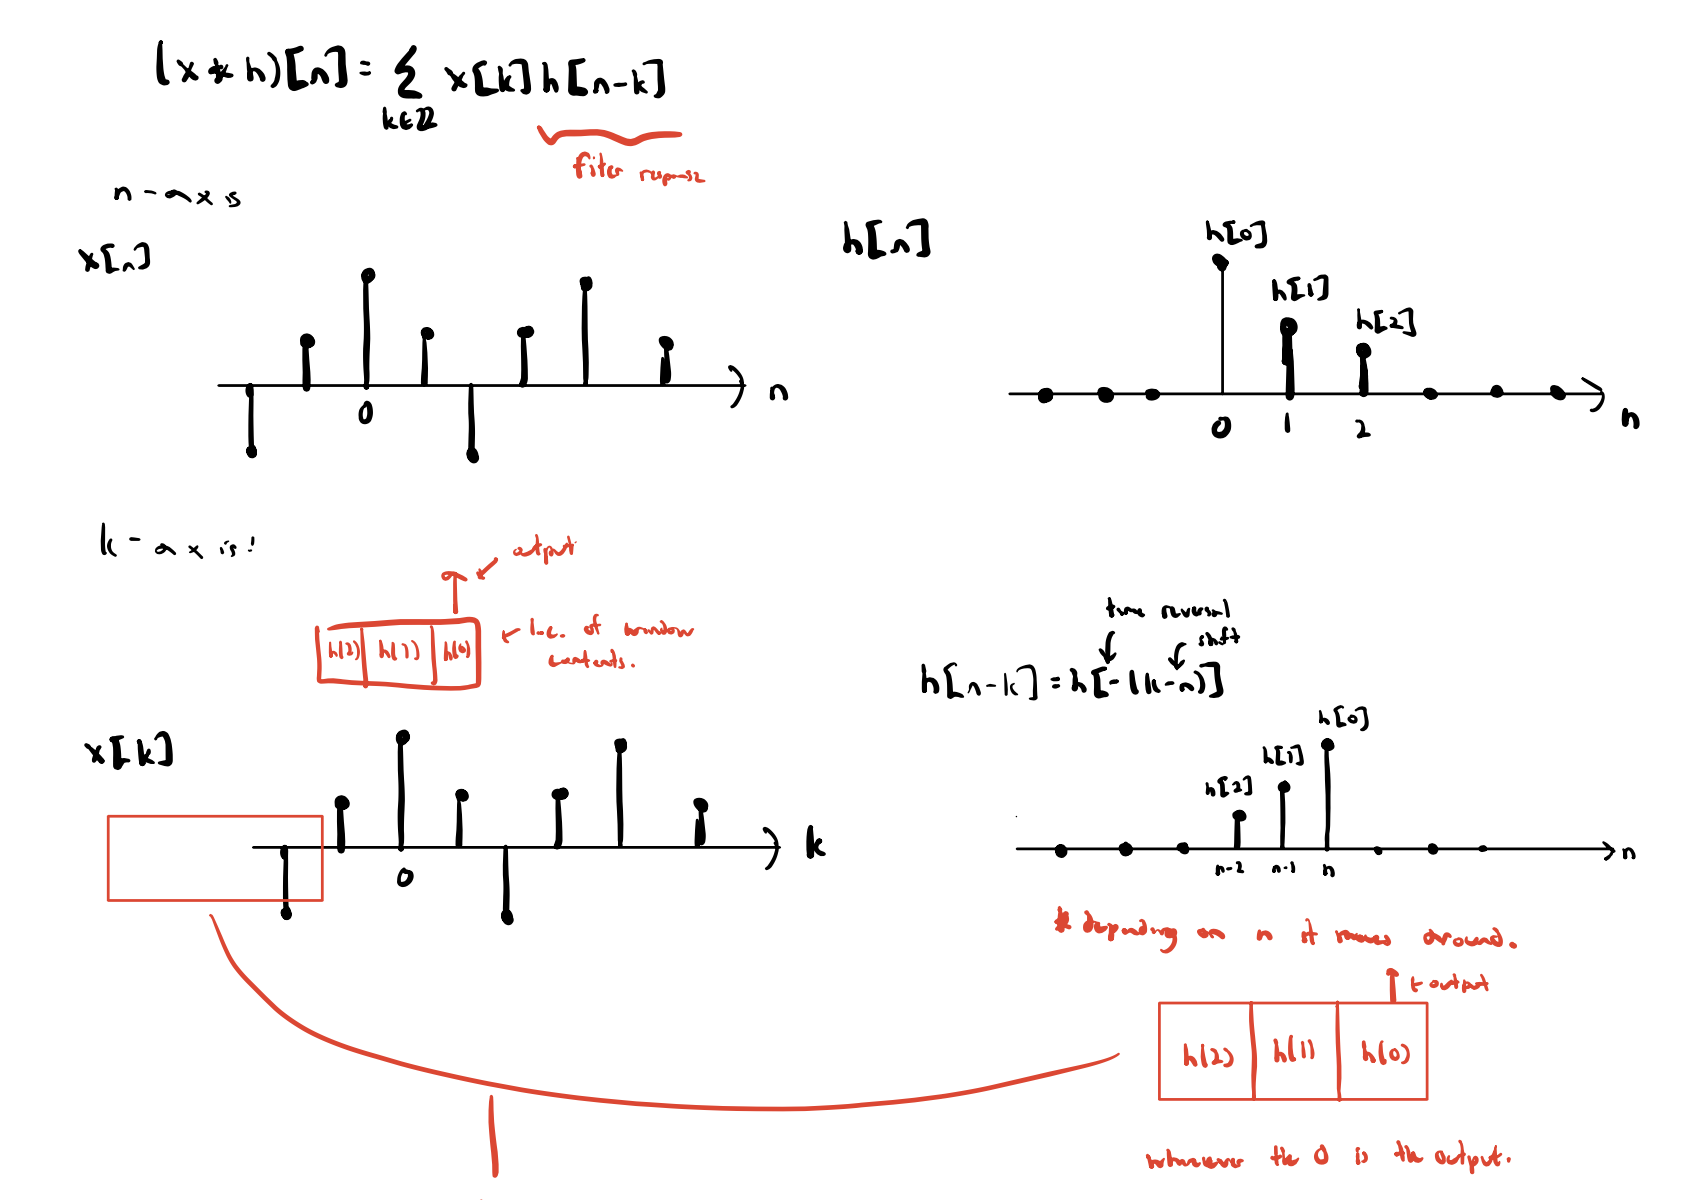 (x * h)[n] = Σ x[k] h[n-k]
k∈ℤ
fiter response
n-axis
x[n]
0
n
h[n]
h[0]
h[1]
h[2]
0 1 2
n
k-axis:
output
h(2) h(1) h(0)
l.c. of window
contents.
x[k]
0
k
time reversal
shift
h[n-k] = h[-(k-n)]
h[0]
h[1]
h[2]
n-2 n-1 n
n
* depending on n it moves around.
output
h(2) h(1) h(0)
wherever the 0 is the output.